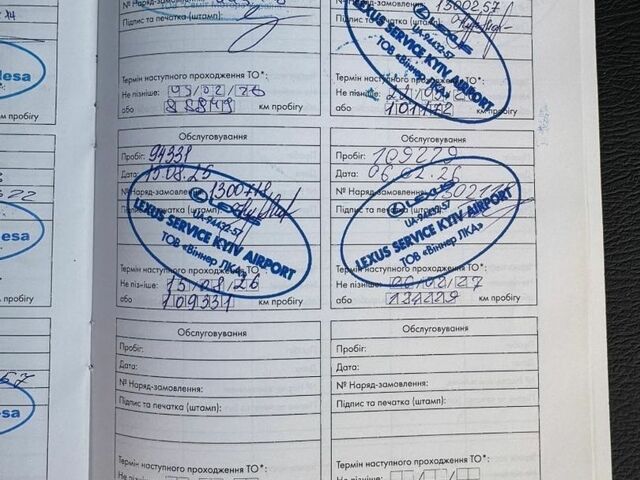 14
lesa
22
esa
67
esa
№ Наряд-замовлення:
Підпис та печатка (штамп):
Термін наступного проходження ТО*:
Не пізніше:
або 88849 км пробігу
№ Наряд-замовлення: 1300257
Підпис та печатка (штамп):
LEXUS
UA-94432-57
LEXUS SERVICE KYIV AIRPORT
ТОВ «Віннер ЛКА»
Термін наступного проходження ТО*:
Не пізніше:
або 101172 км пробігу
Обслуговування
Пробіг: 94331
Дата: 15.08.25
№ Наряд-замовлення: 1300718
Підпис та печатка (штамп):
LEXUS
UA-94432-57
LEXUS SERVICE KYIV AIRPORT
ТОВ «Віннер ЛКА»
Термін наступного проходження ТО*:
Не пізніше: 15/08/26
або 109331 км пробігу
Обслуговування
Пробіг: 109229
Дата: 06.02.26
№ Наряд-замовлення:
Підпис та печатка (штамп):
LEXUS
UA-94432-57
LEXUS SERVICE KYIV AIRPORT
ТОВ «Віннер ЛКА»
Термін наступного проходження ТО*:
Не пізніше: 06/02/27
або 124229 км пробігу
Обслуговування
Пробіг:
Дата:
№ Наряд-замовлення:
Підпис та печатка (штамп):
Термін наступного проходження ТО*:
Обслуговування
Пробіг:
Дата:
№ Наряд-замовлення:
Підпис та печатка (штамп):
Термін наступного проходження ТО*:
Не пізніше: